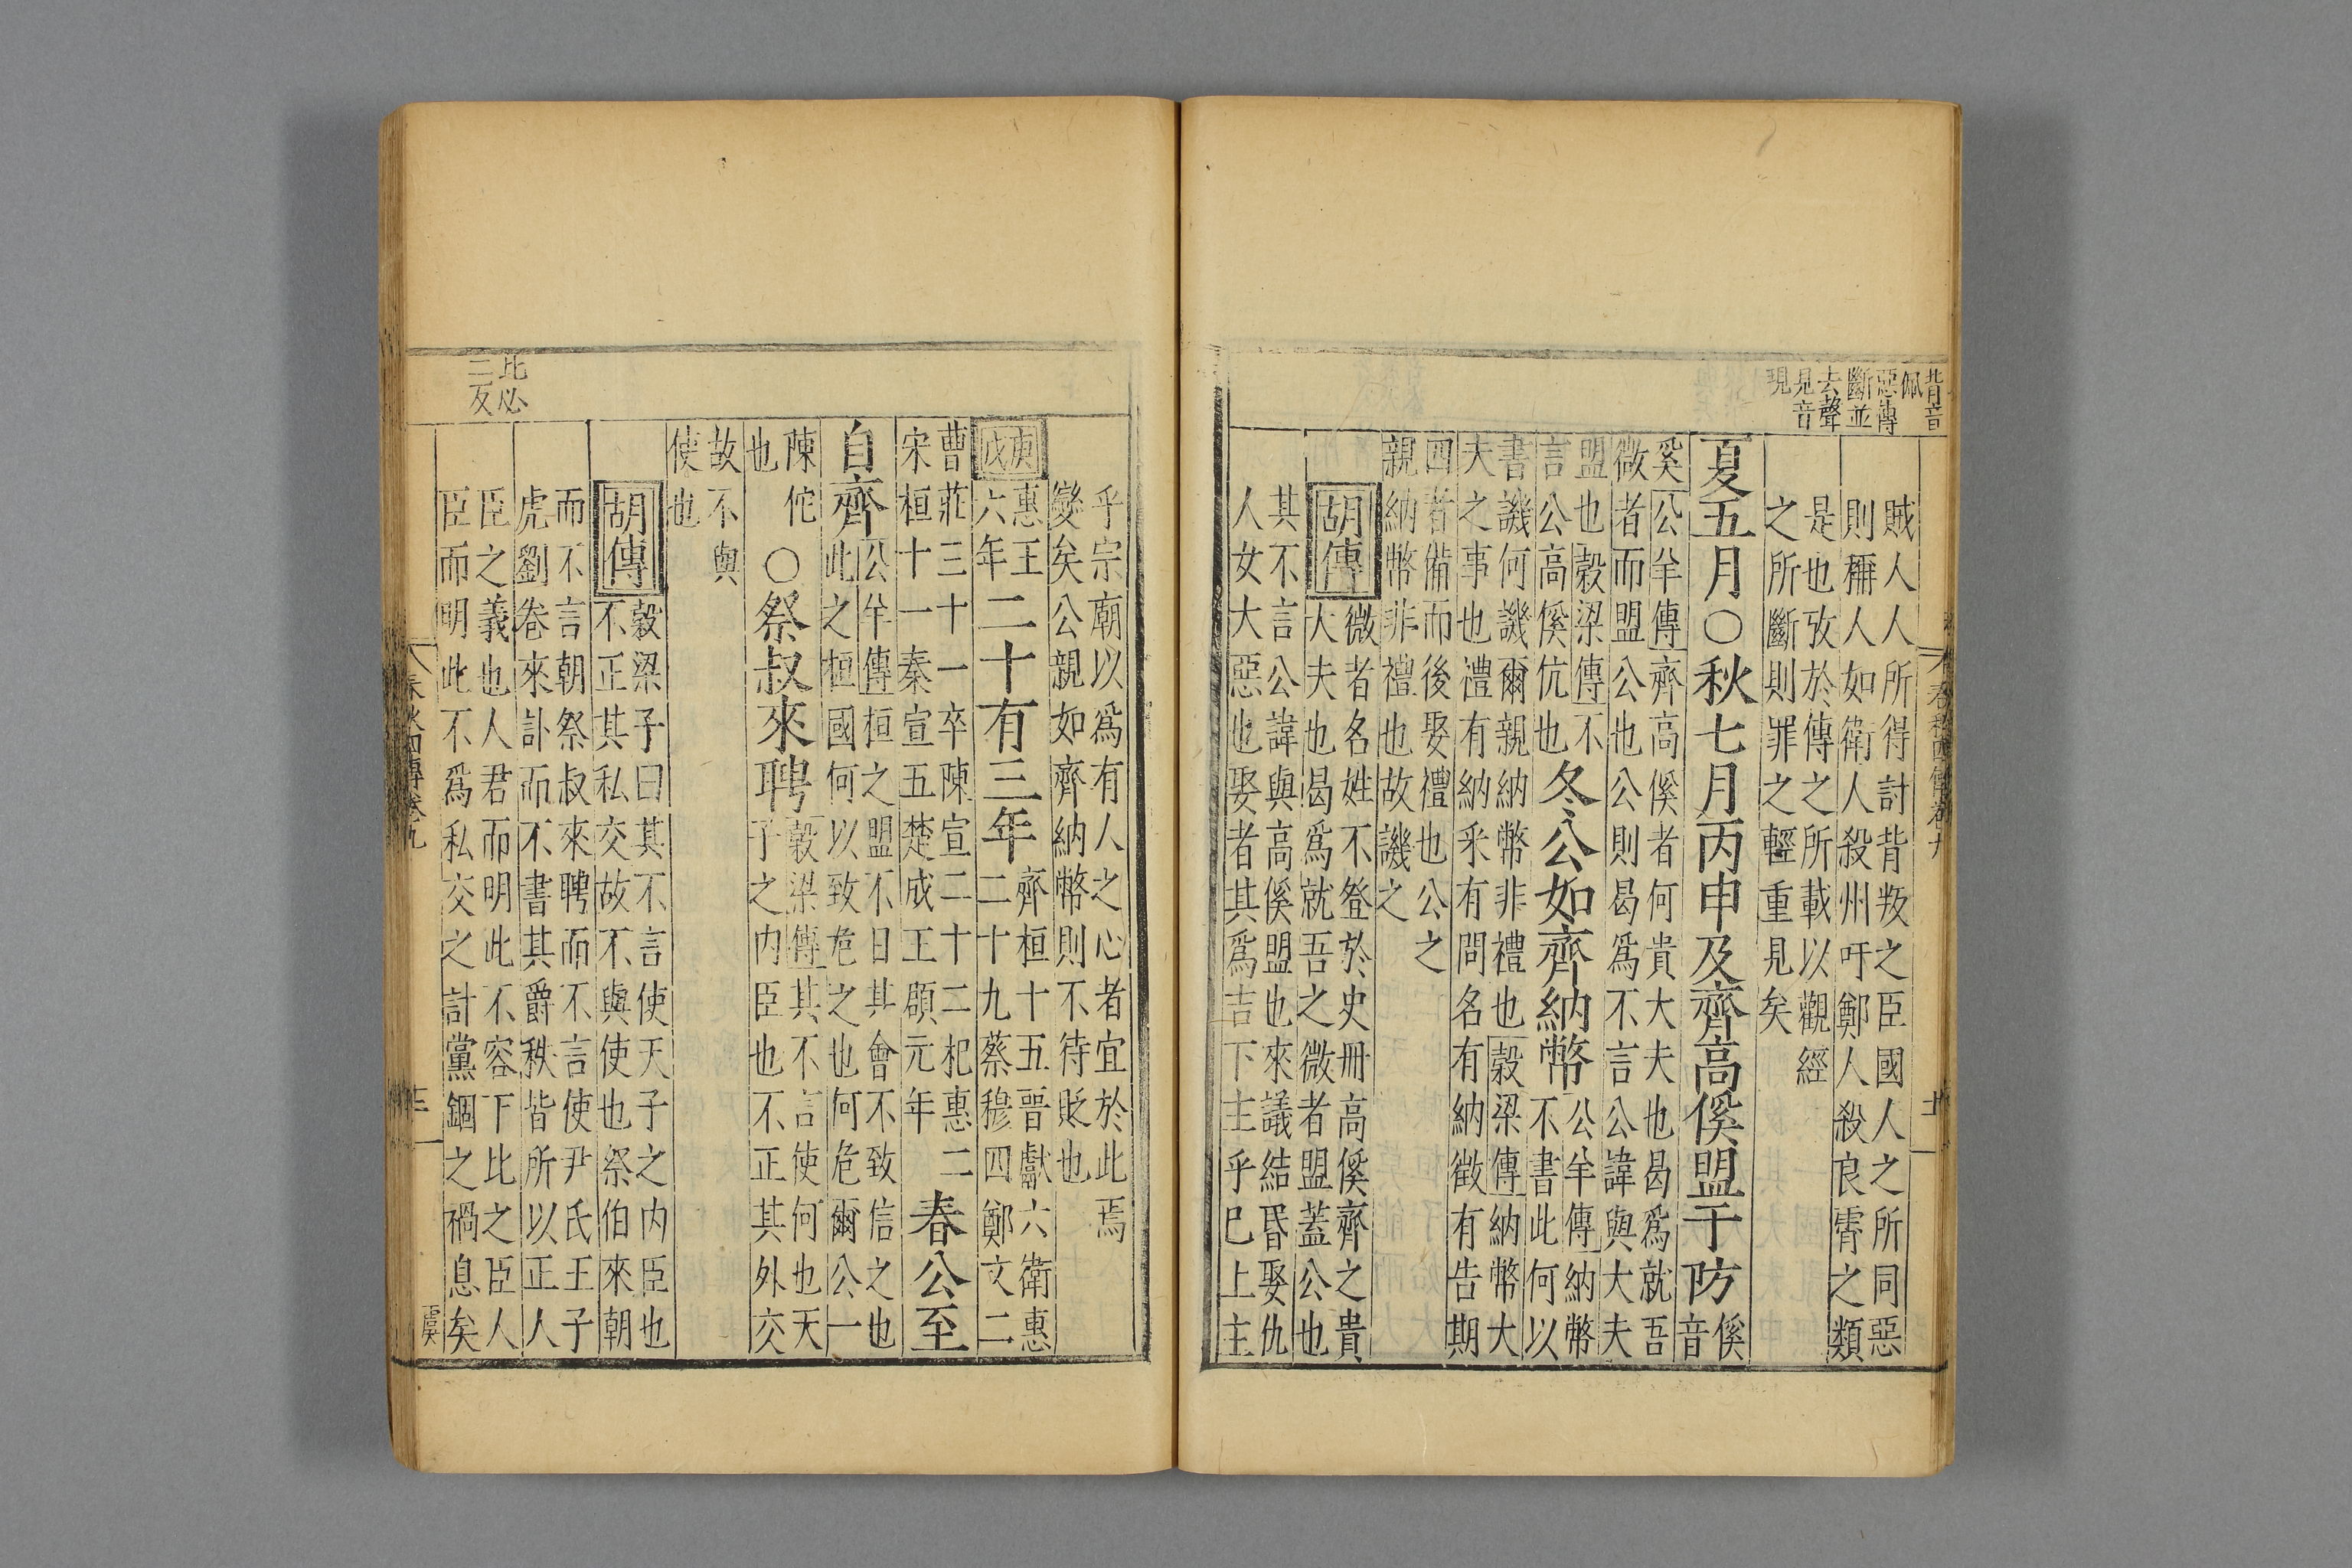 背音
佩
惡傳
斷並
去聲
見音
現
賊人人所得討背叛之臣國人之所同惡
則稱人人如衛人殺州吁鄭人殺良霄之類
是也攷於傳之所載以觀經
之所斷則罪之輕重見矣
夏五月○秋七月丙申及齊高傒盟于防傒音
奚公羊傳齊高傒者何貴大夫也曷爲就吾
微者而盟公也公則曷爲不言公諱與大夫
盟也穀梁傳不
言公高傒伉也
冬公如齊納幣公羊傳納幣
不書此何以
書譏何譏爾親納幣非禮也穀梁傳納幣大
夫之事也禮有納采有問名有納徵有告期
四者備而後娶禮也公之
親納幣非禮也故譏之
胡傳
微者名姓不登於史冊高傒齊之貴
大夫也曷爲就吾之微者盟蓋公也
其不言公諱與高傒盟也來議結昏娶仇
人女大惡也娶者其爲吉下主乎已上主
春秋四傳卷九
十一
乎宗廟以爲有人之心者宜於此焉
變矣公親如齊納幣則不待貶也
庚戌
惠王
六年
二十有三年
齊桓十五晉獻六衛惠
二十九蔡穆四鄭文二
曹莊三十一卒陳宣二十二杞惠二
宋桓十一秦宣五楚成王頵元年
春公至
自齊
公羊傳桓之盟不日其會不致信之也
此之桓國何以致危之也何危爾公一
陳佗
也
○祭叔來聘
穀梁傳其不言使何也天
子之內臣也不正其外交
故不與
使也
胡傳
穀梁子曰其不言使天子之內臣也
不正其私交故不與使也祭伯來朝
而不言朝祭叔來聘而不言使尹氏王子
虎劉卷來訃而不書其爵秩皆所以正人
臣之義也人君而明此不容下比之臣人
臣而明此不爲私交之計黨錮之禍息矣
比必
二反
春秋四傳卷九
十二